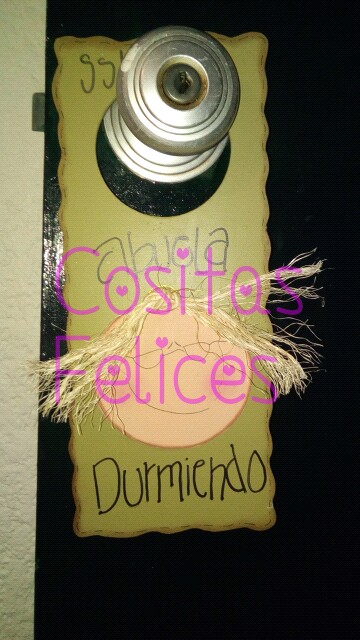 abuela
Cositas
Felices
Durmiendo